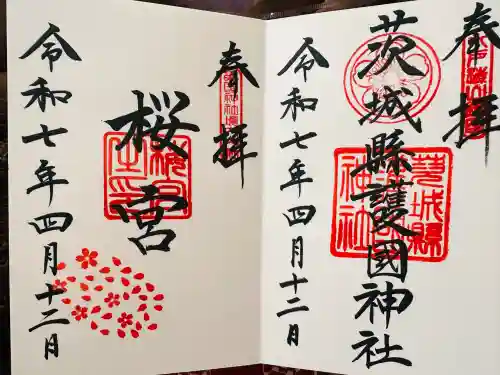 奉拝
茨城縣護國神社
令和七年四月十二日
奉拝
桜宮
令和七年四月十二日